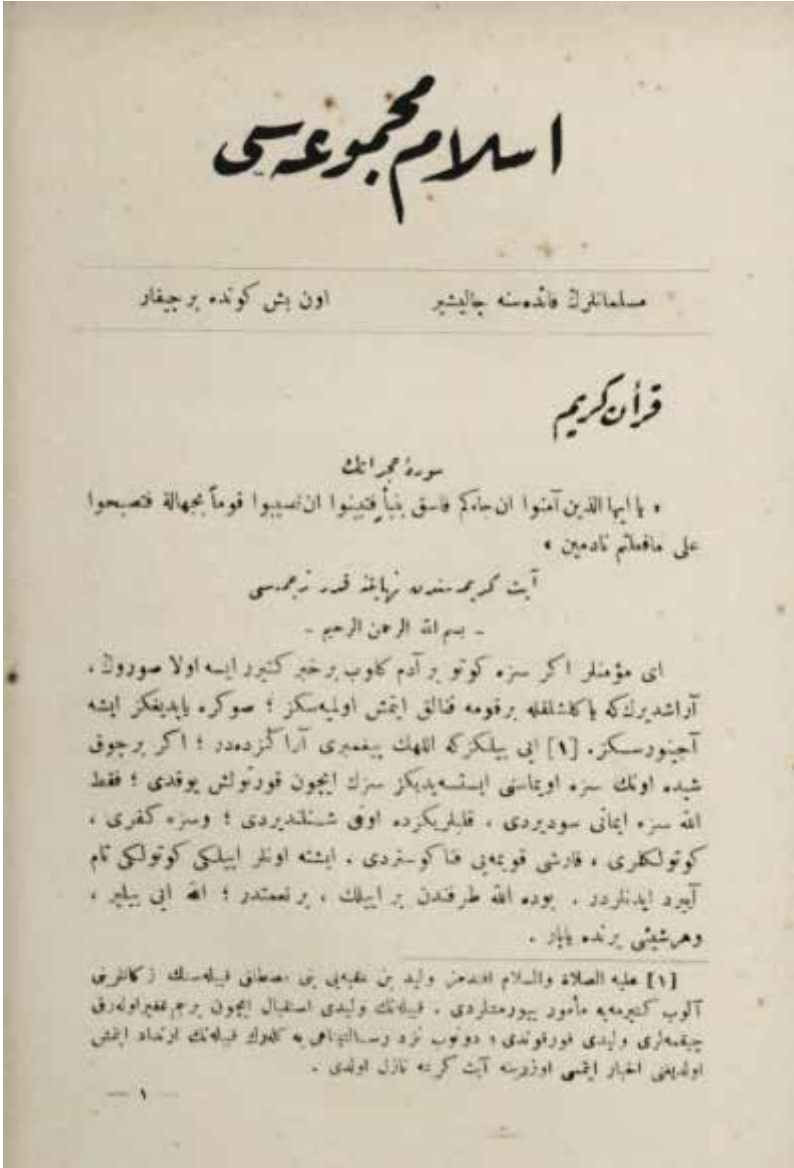 اسلام مجموعه‌سی
مسلمانلرڭ فائده‌سنه چالیشیر
اون بش كونده بر چیقار
قرأن كریم
سورهٔ حجراتك
« یا ایها الذین آمنوا ان جاءكم فاسق بنبأٍ فتبینوا ان تصیبوا قوماً بجهالة فتصبحوا
علی مافعلتم نادمین »
آیت كریمه‌سندن نهایتنه قدر ترجمه‌سی
ـ بسم الله الرحمن الرحیم ـ
ای مؤمنلر اكر سزه كوتو بر آدم كلوب بر خبر كتیرر ایسه اولا صورڭ ،
آراشدیرڭ كه یاكلشلقله بر قومه فنالق ایتمش اولمیه‌سكز ؛ صوكره یاپدیغكز ایشه
آجینورسكز. [١] ایی بیلكز كه اللهك پیغمبری آراكزده‌در ؛ اكر بر چوق
شیده اونك سزه اویماسنی ایسته‌یدیكز سزك ایچون قورتولش یوقدی ؛ فقط
الله سزه ایمانی سودیردی ، قلبلریكزده اونی شنلندیردی ؛ وسزه كفری ،
كوتولكلری ، قارشی قویمه‌یی فنا كوستردی . ایشته اونلر اییلكی كوتولكی تام
آییرد ایدنلردر . بوده الله طرفندن بر اییلك ، بر نعمتدر ؛ الله ایی بیلیر ،
وهر شیئی یرنده یاپار .
[١] علیه الصلاة والسلام افندمز ولید بن عقبه‌یی بنی مصطلق قبیله‌سنك زكاتلرینی
آلوب كتیرمه‌یه مأمور بیورمشلردی . قبیله‌نك ولیدی استقبال ایچون برجم غفیر اوله‌رق
چیقمه‌لری ولیدی قورقوتدی ؛ دونوب نزد رسالتپناهی‌یه كله‌رك قبیله‌نك ارتداد ایتمش
اولدیغنی اخبار ایتمسی اوزرینه آیت كریمه نازل اولدی .
— ١ —